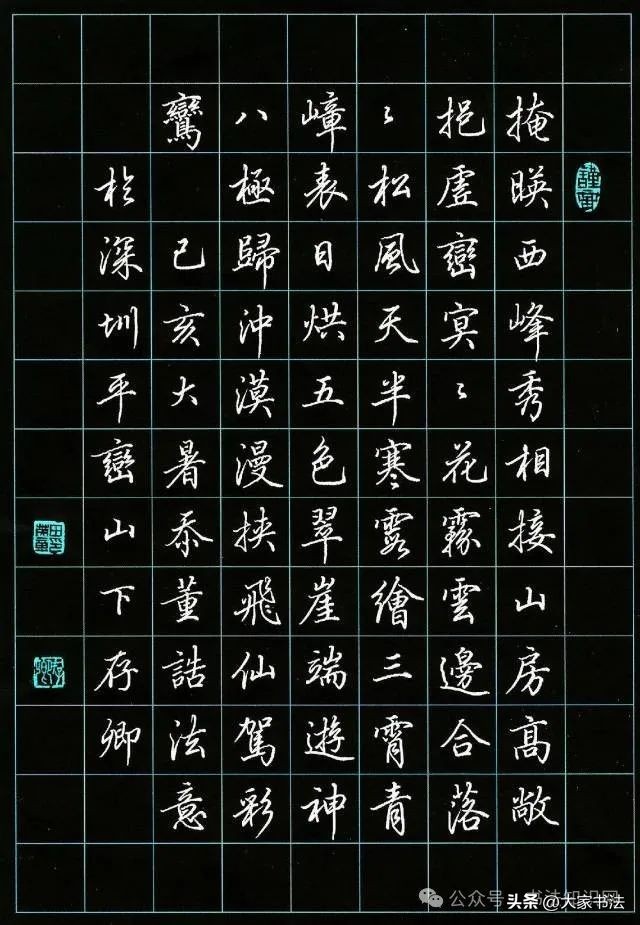 掩暎西峰秀相接山房高敞
挹虛巒冥〻花霧雲邊合落
〻松風天半寒霞繪三霄青
嶂表日烘五色翠崖端遊神
八極歸沖漠漫挾飛仙駕彩
鸞
己亥大暑叅董誥法意
於深圳平巒山下存卿
公众号 · 书法知识网
头条 @大家书法